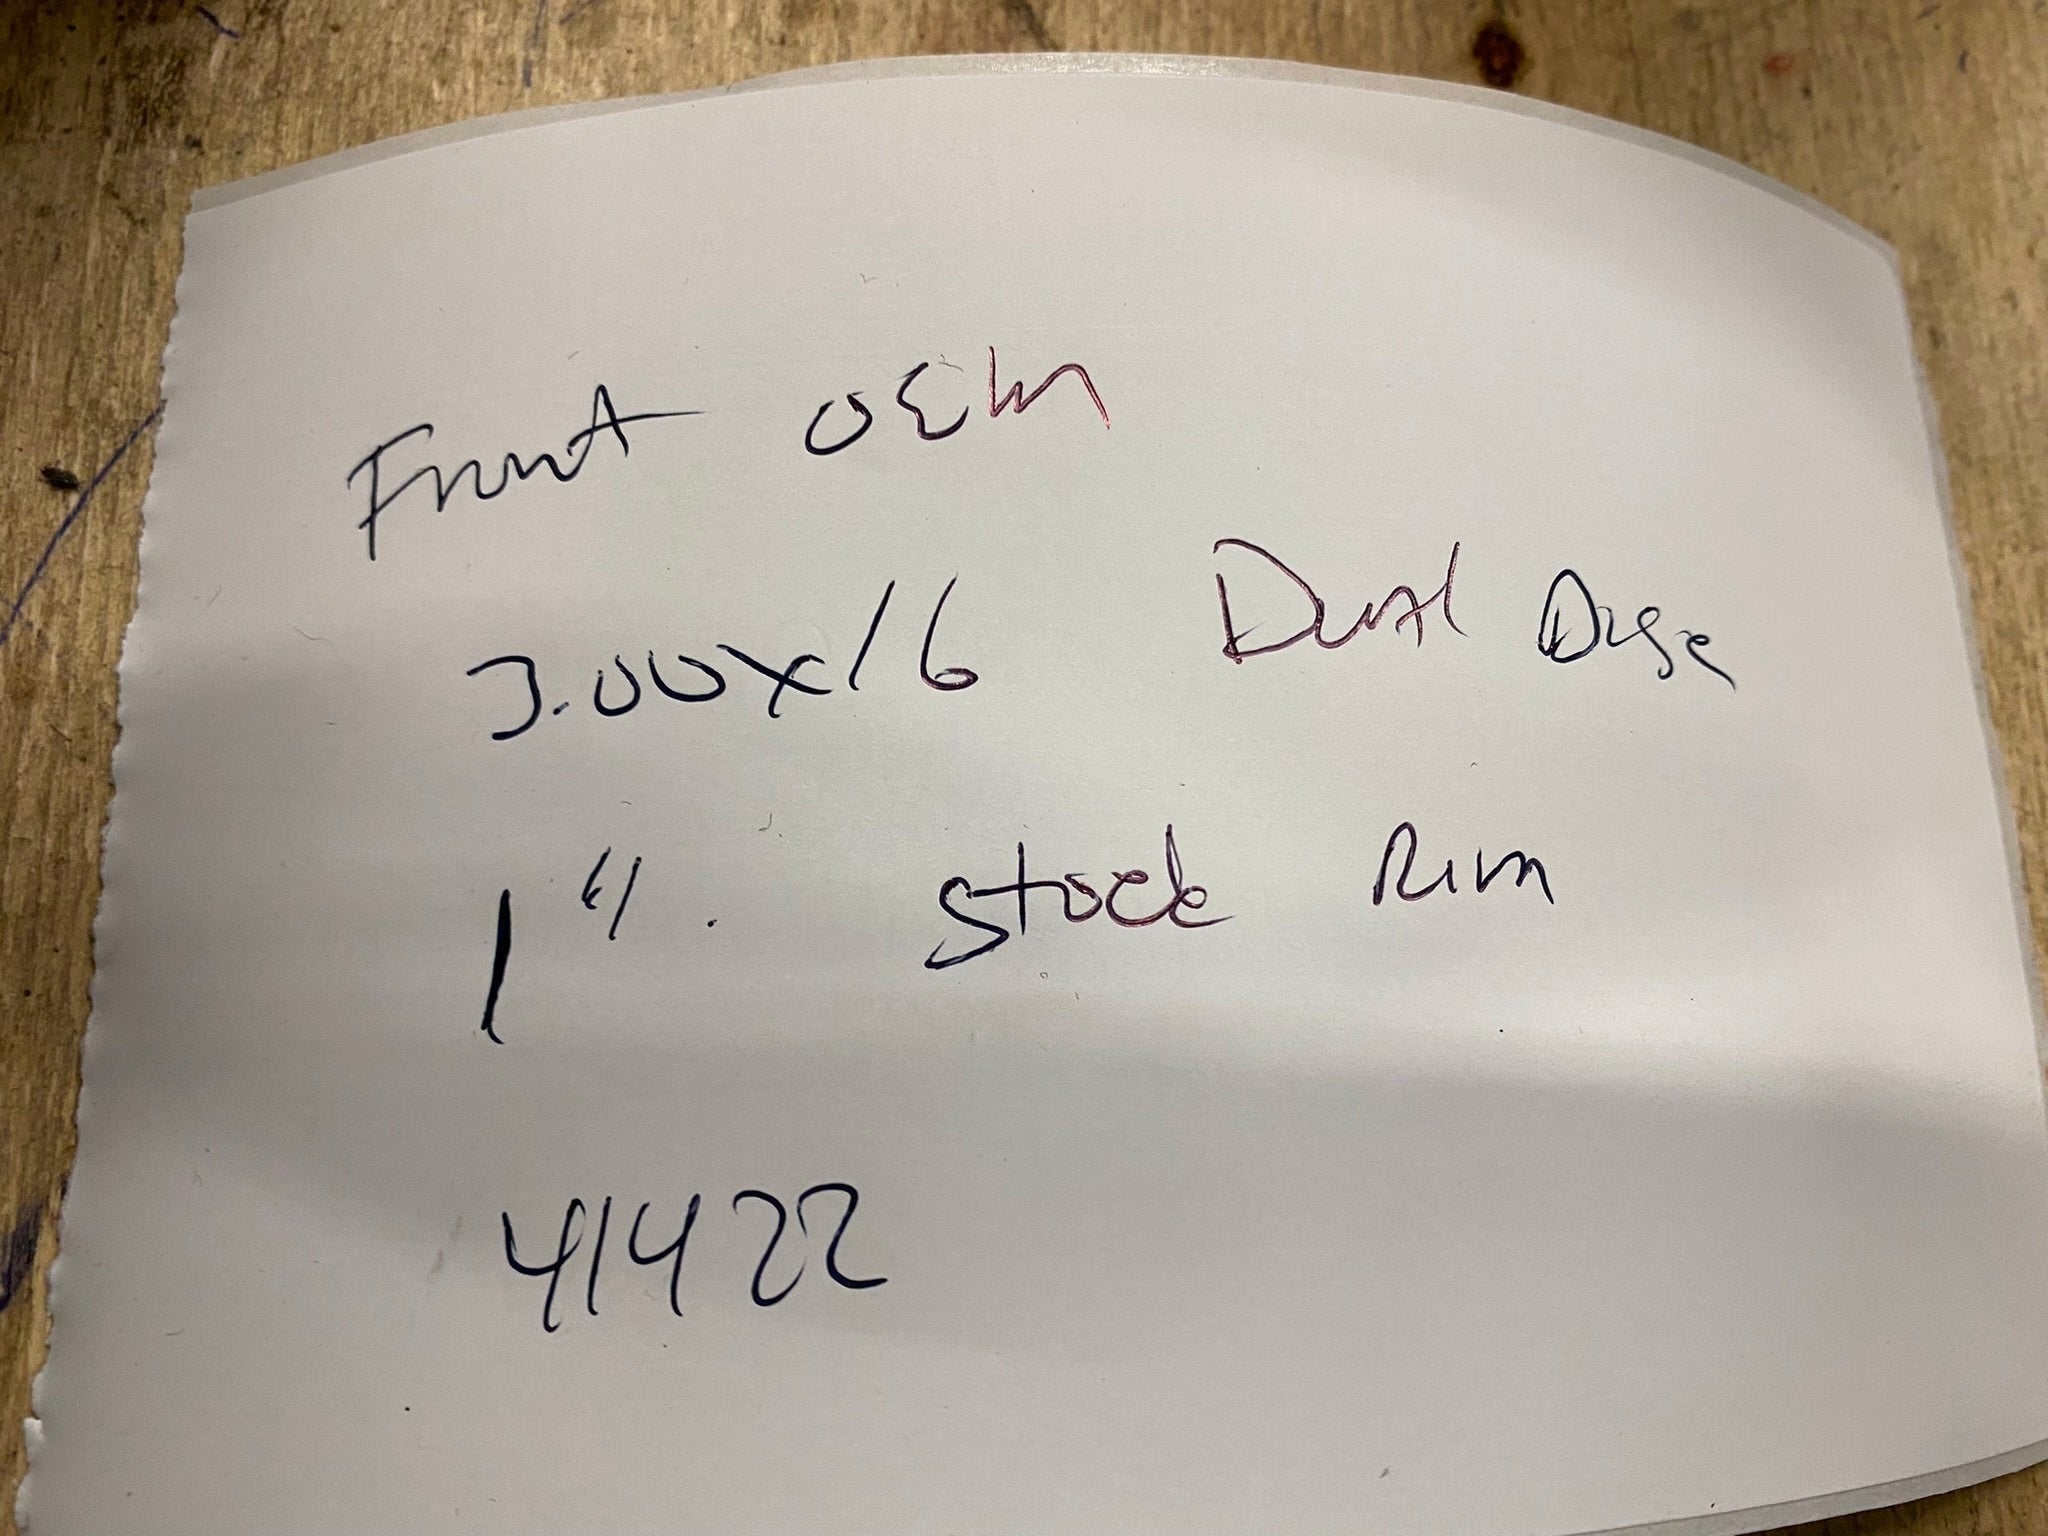 Front OEM
3.00x16 Dual Disc
1". Stock Rim
41422